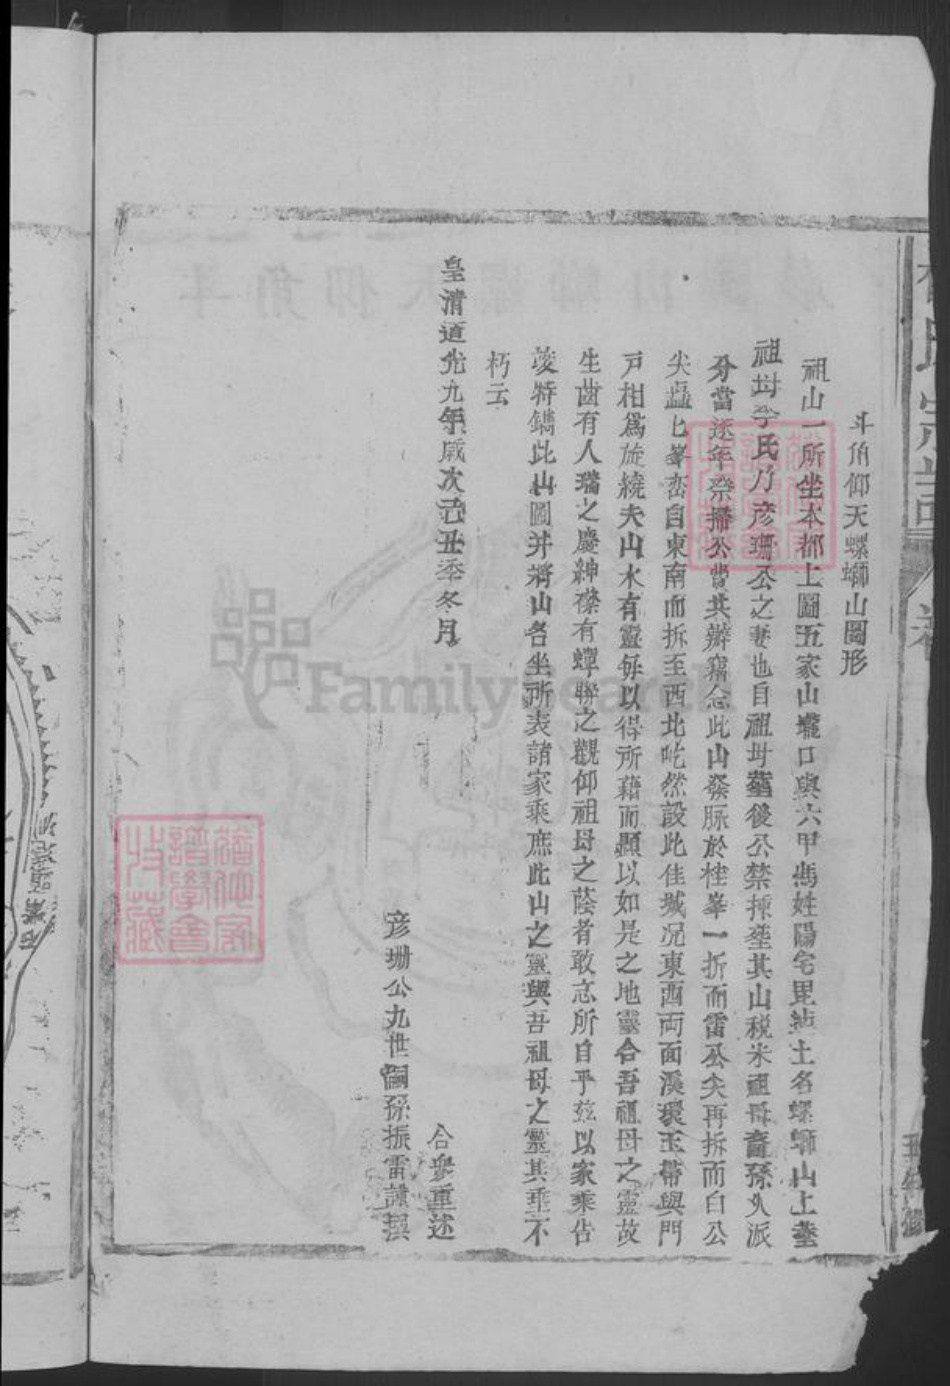 斗角仰天螺螄山圖形
祖山一所坐本都上圖五家山壠口與六甲馮姓陽宅毘連土名螺螄山上塟
祖母李氏乃彥珊公之妻也自祖母塟後公禁揀塟其山稅米祖母裔孫乆派
分當逐年祭掃公嘗共辦竊念此山發脉於桂峯一折而雷公尖再拆而白公
尖矗峯峦自東南而拆至西北屹然設此佳城况東西両面溪環玉帶與門
戸相爲旋繞夫山水有靈每以得所藉而顯以如是之地靈合吾祖母之靈故
生齒有人瑞之慶紳襟有蟬聯之觀仰祖母之蔭者敢忘所自乎玆以家乘告
竣特鐫此山圖并將山各坐所表諸家乘庶此山之靈與吾祖母之靈其垂不
朽云
皇清道光九年歲次己丑季冬月
合衆重述
彥珊公九世嗣孫振雷謹撰
氏宗譜
FamilySearch